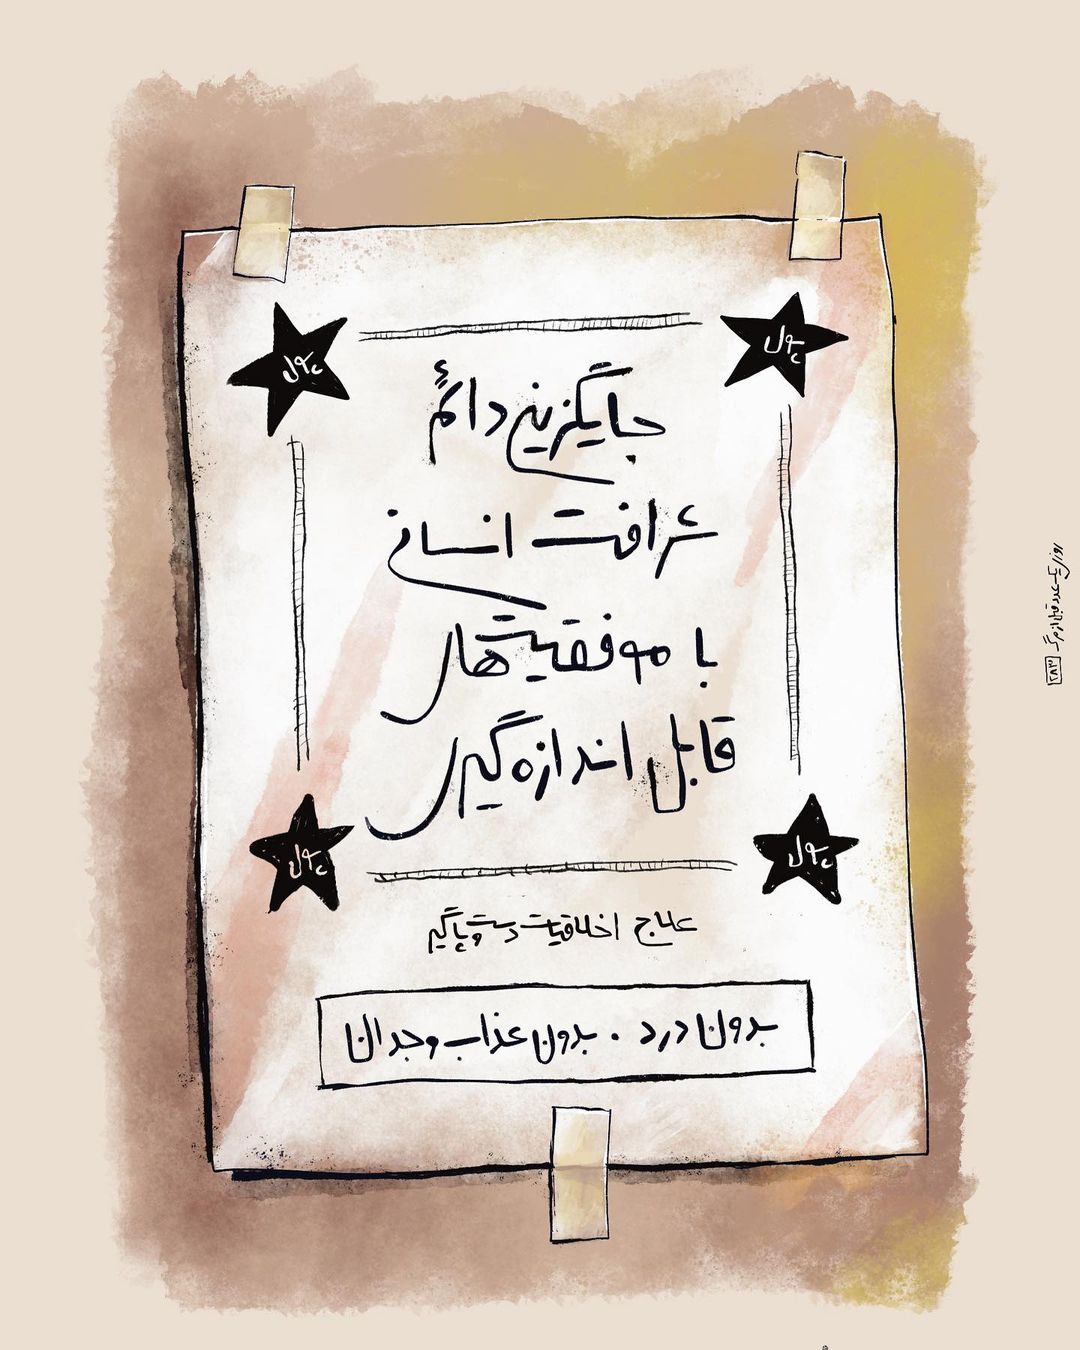 پول
پول
جایگزینی دائم
شرافت انسانی
با موفقیت‌های
قابل اندازه‌گیری
پول
پول
علاج اخلاقیات دست‌وپاگیر
بدون درد . بدون عذاب وجدان
روزی یک عدد قبل از مرگ
۲۸۳